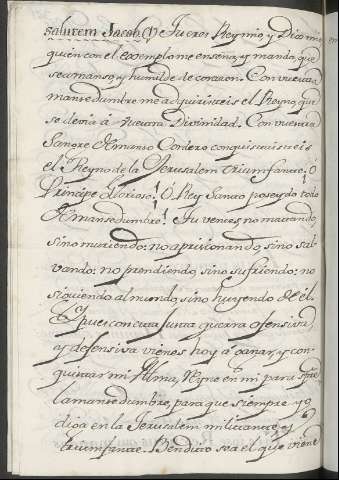 salutem Jacob. (1) Tu eres Rey mio, y Dios mio
quien con el exemplo me enseña, y manda, que
sea manso, y humilde de corazon. Con vuestra
mansedumbre me adquiristeis el Reyno, que
se devia á vuestra Divinidad. Con vuestra
Sangre ó manso Cordero conquistasteis
el Reyno de la Jerusalem triumfante. ó
Principe glorioso! ó Rey Santo poseydo todo
de mansedumbre! Tu vences no matando,
sino muriendo: no aprisionando, sino sal-
vando: no prendiendo, sino sufriendo: no
siguiendo al mundo, sino huyendo de él.
Y pues con esta justa guerra ofensiva,
y defensiva vienes hoy á ganar, y con-
quistar mi Alma, Reyne en mi para siempre
la mansedumbre, para que siempre yo
diga en la Jerusalem militante, y
triumfante. Bendito sea el que viene